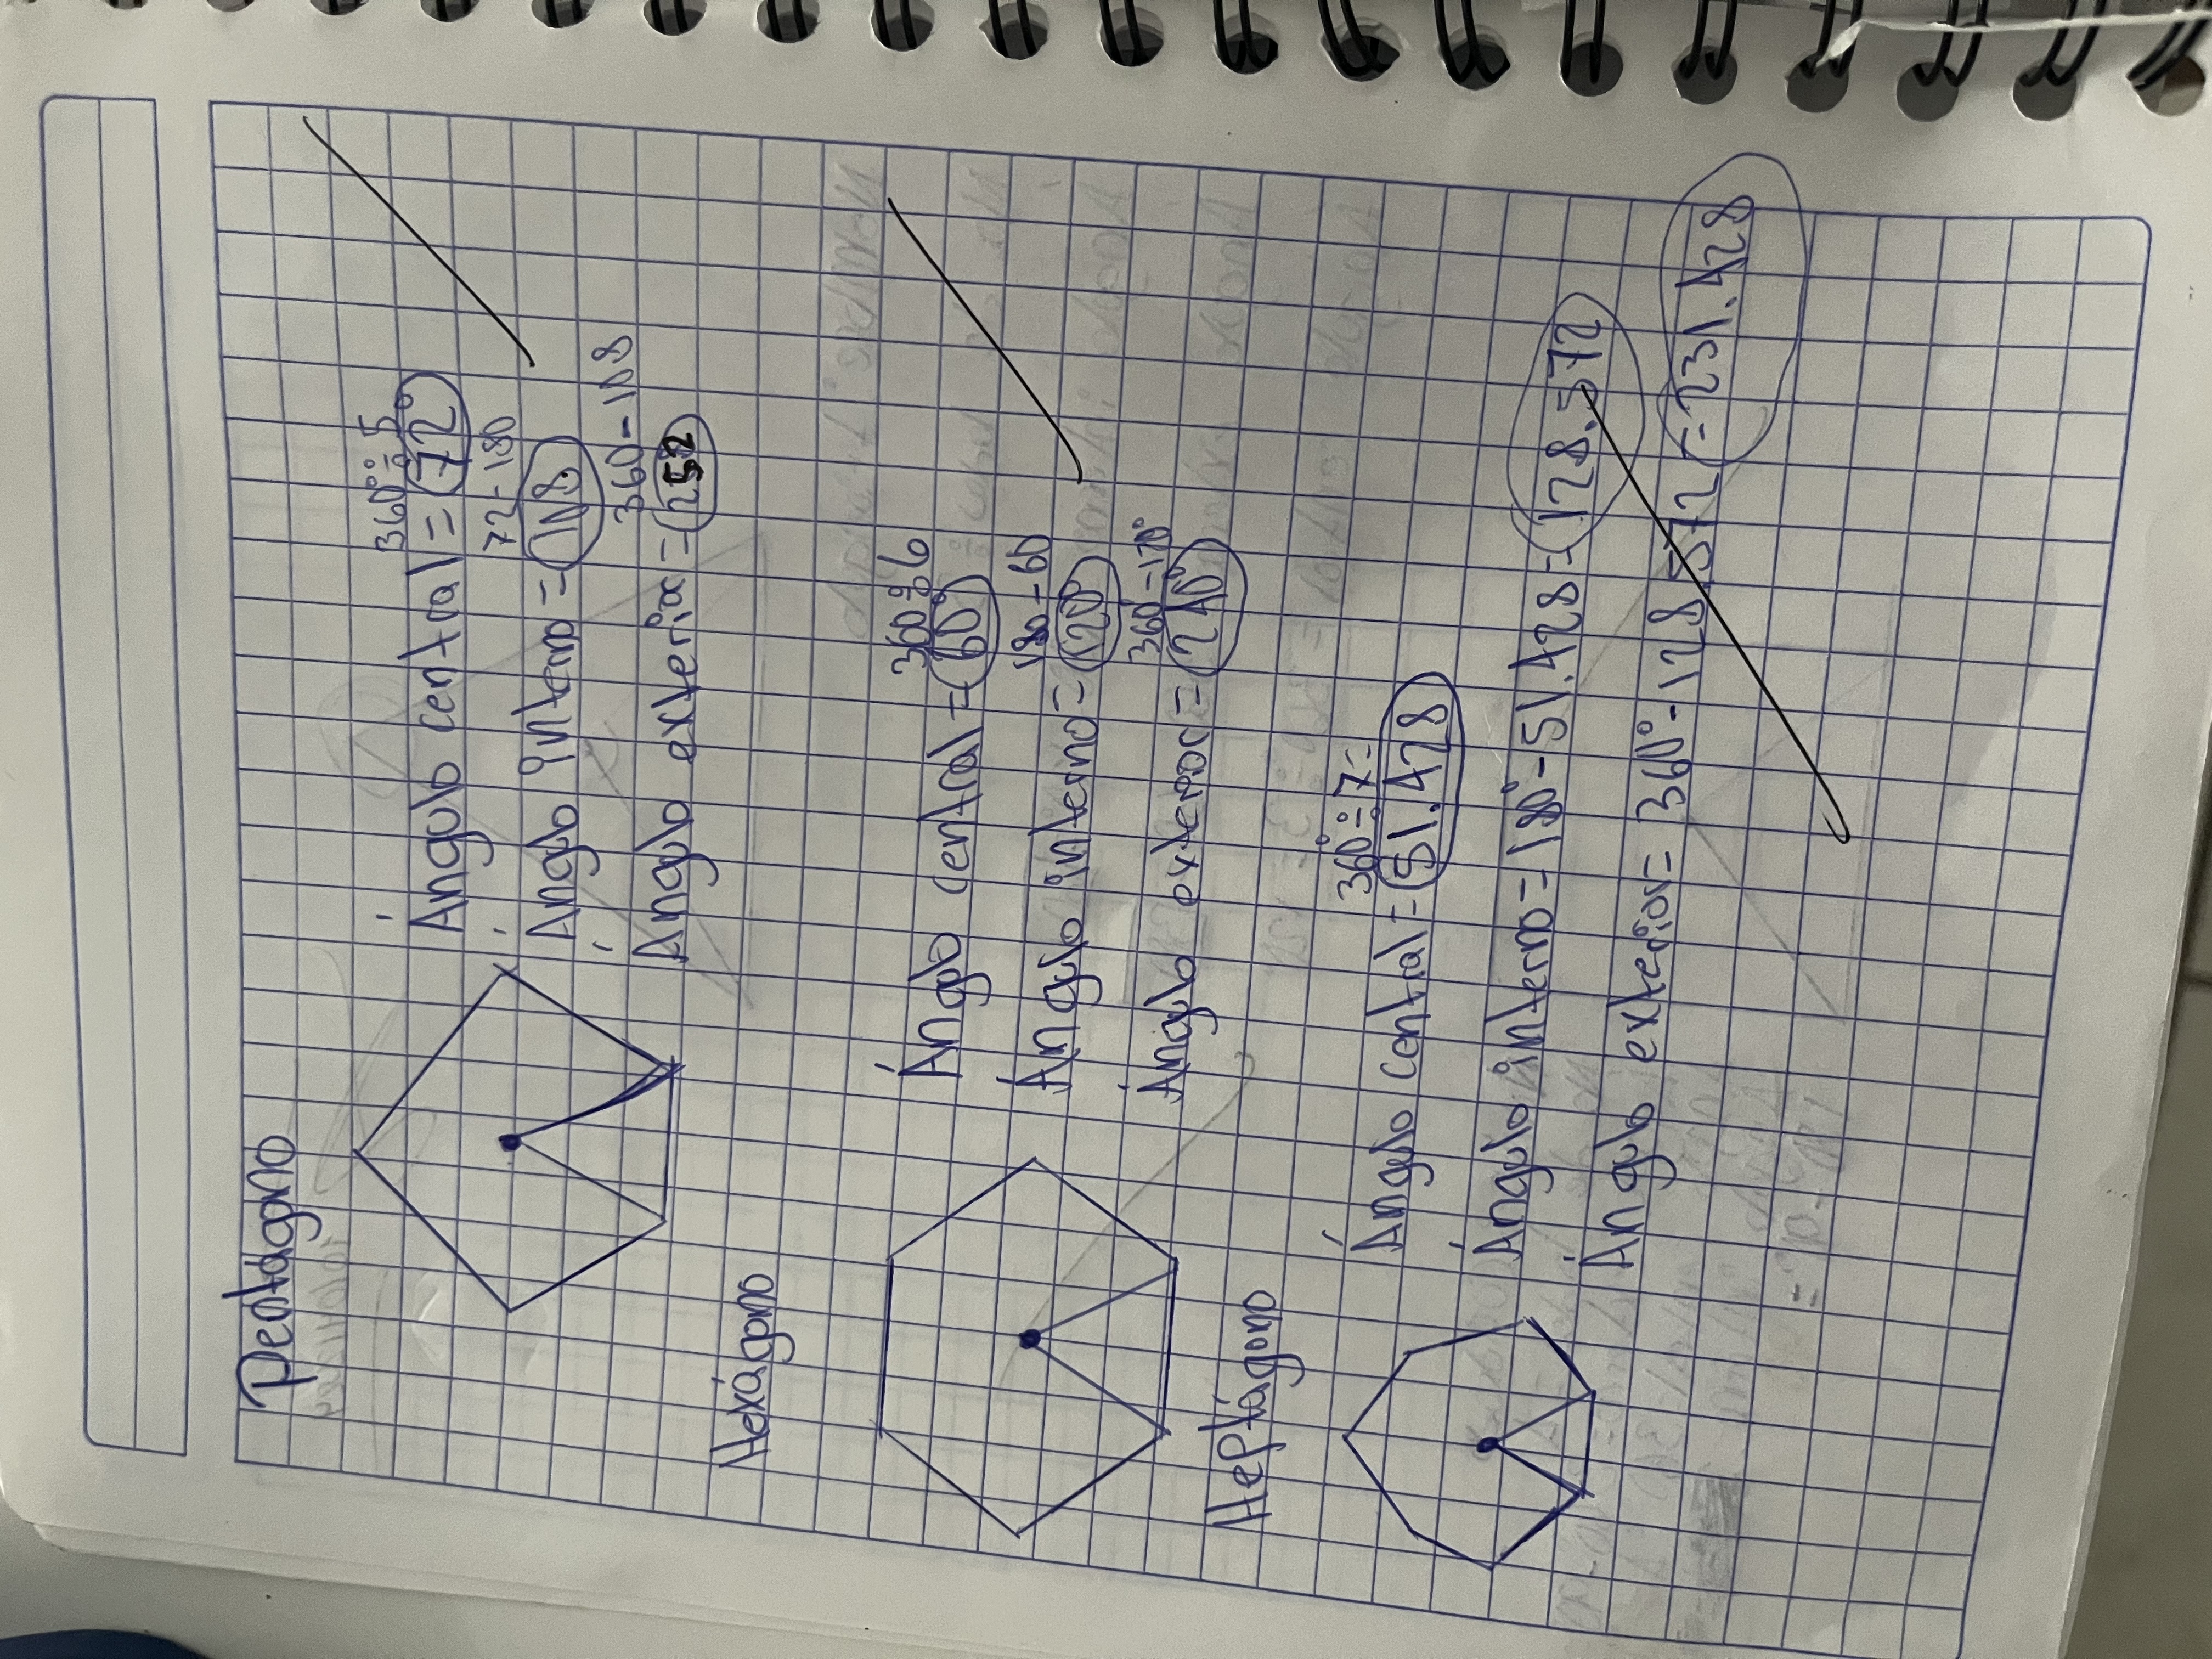 Pentágono
360° ÷ 5
Ángulo central = 72°
72 - 180
Ángulo interno = 108°
360 - 108
Ángulo exterior = 252
Hexágono
360 ÷ 6
Ángulo central = 60°
180 - 60
Ángulo interno = 120°
360 - 120°
Ángulo exterior = 240°
Heptágono
360° ÷ 7 =
Ángulo central = 51.428
Ángulo interno = 180° - 51.428 = 128.572
Ángulo exterior = 360° - 128.572 = 231.428